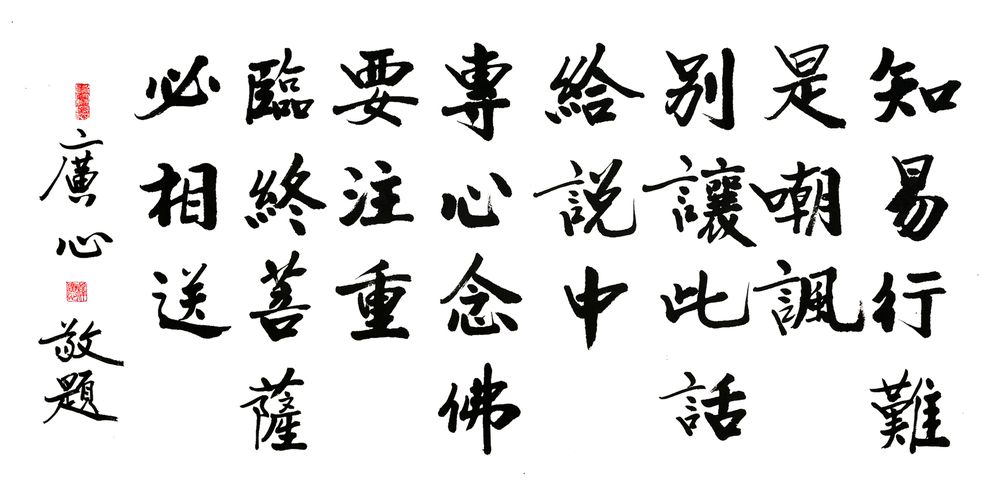 知易行難
是嘲諷
別讓此話
給說中
專心念佛
要注重
臨終菩薩
必相送
廣心敬題